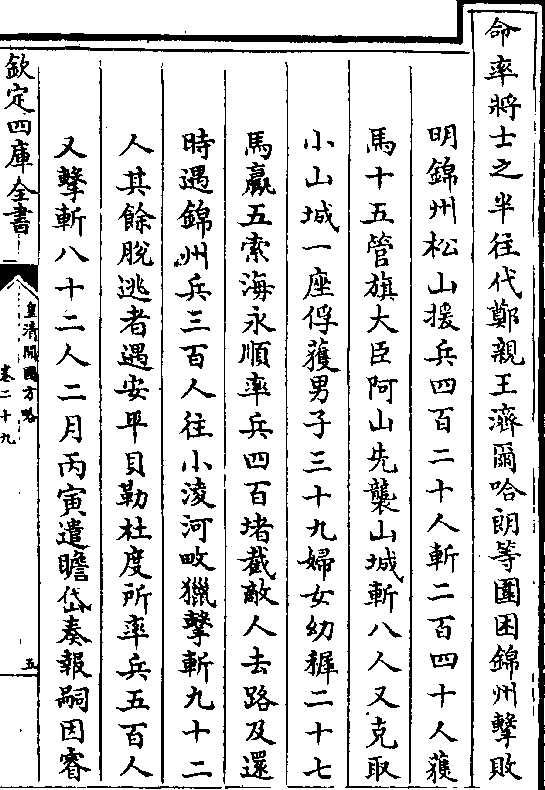 命率將士之半往代鄭親王濟爾哈朗等圍困錦州擊敗
明錦州松山援兵四百二十人斬二百四十人獲
馬十五管旗大臣阿山先襲山城斬八人又克取
小山城一座俘獲男子三十九婦女幼穉二十七
馬驘五索海永順率兵四百堵截敵人去路及還
時遇錦州兵三百人往小淩河畋獵擊斬九十二
人其餘脫逃者遇安平貝勒杜度所率兵五百人
又擊斬八十二人二月丙寅遣瞻岱奏報嗣因睿
欽定四庫全書
皇清開國方略
卷二十九
五